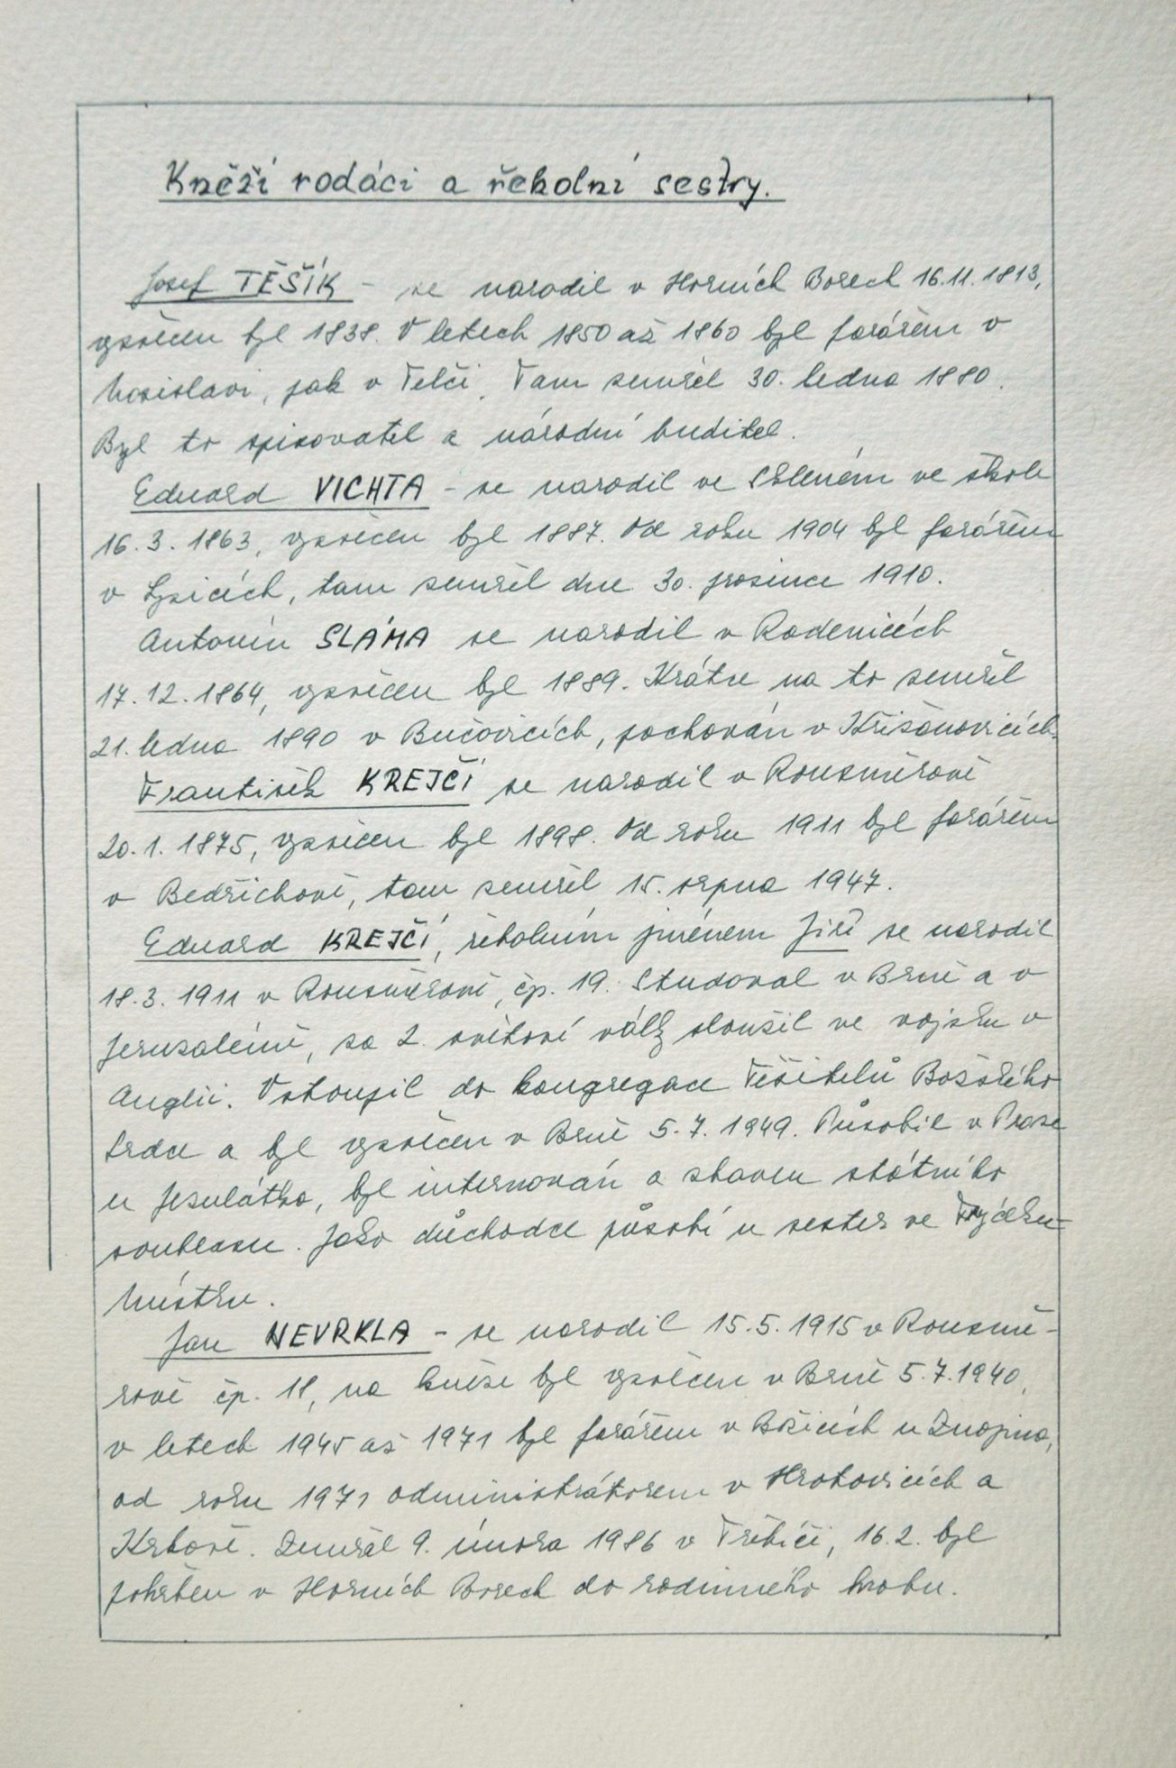 Kněží rodáci a řeholní sestry.
Josef TĚŠÍK - se narodil v Horních Borech 16.11.1813,
vysvěcen byl 1838. V letech 1850 až 1860 byl farářem v
Mosislavi, pak v Telči. Tam zemřel 30. ledna 1880.
Byl to spisovatel a národní buditel.
Eduard VICHTA - se narodil ve Skleném ve škole
16.3.1863, vysvěcen byl 1887. Od roku 1904 byl farářem
v Lysicích, tam zemřel dne 30. prosince 1910.
Antonín SLÁMA se narodil v Radenicích
17.12.1864, vysvěcen byl 1889. Krátce na to zemřel
21. ledna 1890 v Bučovicích, pochován v Křižanovicích.
František KREJČÍ se narodil v Rousměrově
20.1.1875, vysvěcen byl 1898. Od roku 1911 byl farářem
v Bedřichově, tam zemřel 15. srpna 1947.
Eduard KREJČÍ, řeholním jménem Jiří se narodil
18.3.1911 v Rousměrově, čp. 19. Studoval v Brně a v
Jerusalémě, za 2. světové války sloužil ve vojsku v
Anglii. Vstoupil do kongregace Těšitelů Božského
Srdce a byl vysvěcen v Brně 5.7.1949. Působil v Praze
u Jesulátka, byl internován a zbaven státního
souhlasu. Jako důchodce působí u sester ve Frýdku-
Místku.
Jan NEVRKLA - se narodil 15.5.1915 v Rousmě-
rově čp. 11, na kněze byl vysvěcen v Brně 5.7.1940,
v letech 1945 až 1971 byl farářem v Božicích u Znojma,
od roku 1971 administrátorem v Hrotovicích a
Krhově. Zemřel 9. února 1986 v Třebíči, 16.2. byl
pohřben v Horních Borech do rodinného hrobu.